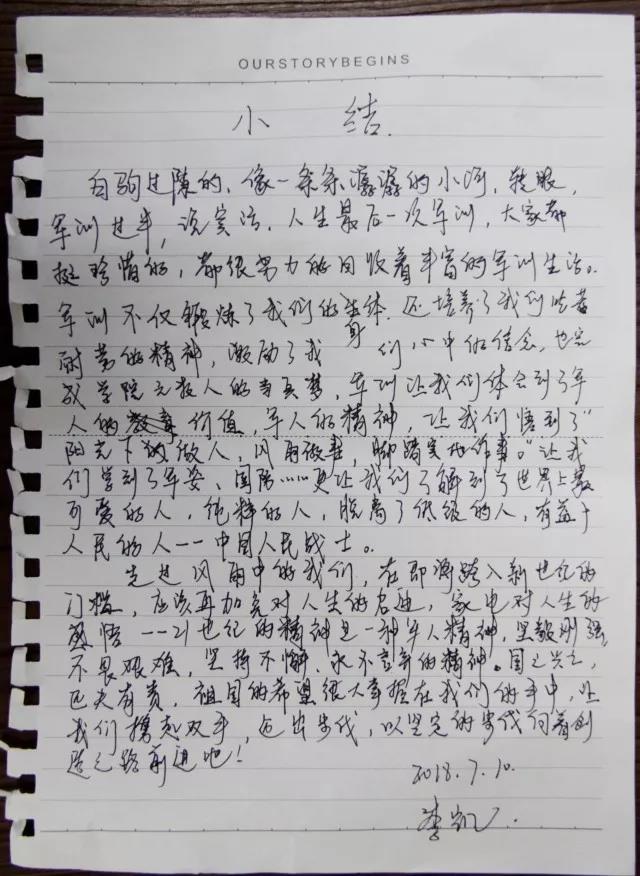 OURSTORYBEGINS
小 结.
白驹过隙的、像一条条潺潺的小河,转眼,
军训过半,说实话,人生最后一次军训,大家都
挺珍惜的,都很努力的回收着丰富的军训生活。
军训不仅锻炼了我们的身体.还培养了我们吃苦
耐劳的精神,激励了我们心中的信念,也完
成学院无数人的当兵梦,军训让我们体会到了军
人的价值,军人的精神,让我们悟到了"
阳光下做人,风雨做事,脚踏实地作事。"让我
们学到了军姿、国防……更让我们了解到了世界上最
可爱的人,纯粹的人,脱离了低级的人,有益于
人民的人--中国人民战士。
走进风雨中的我们,在即将跨入新世纪的
门槛,应该再加免对人生的启迪,对人生的
感悟--21世纪的精神是一种军人精神,坚毅刚强
不畏艰难,坚持不懈、永不言弃的精神。国之兴亡,
匹夫有责,祖国的希望很大掌握在我们的手中,让
我们携起双手,迈出步伐,以坚定的步伐向着创
造之路前进吧!
2018.7.10.
李凯.